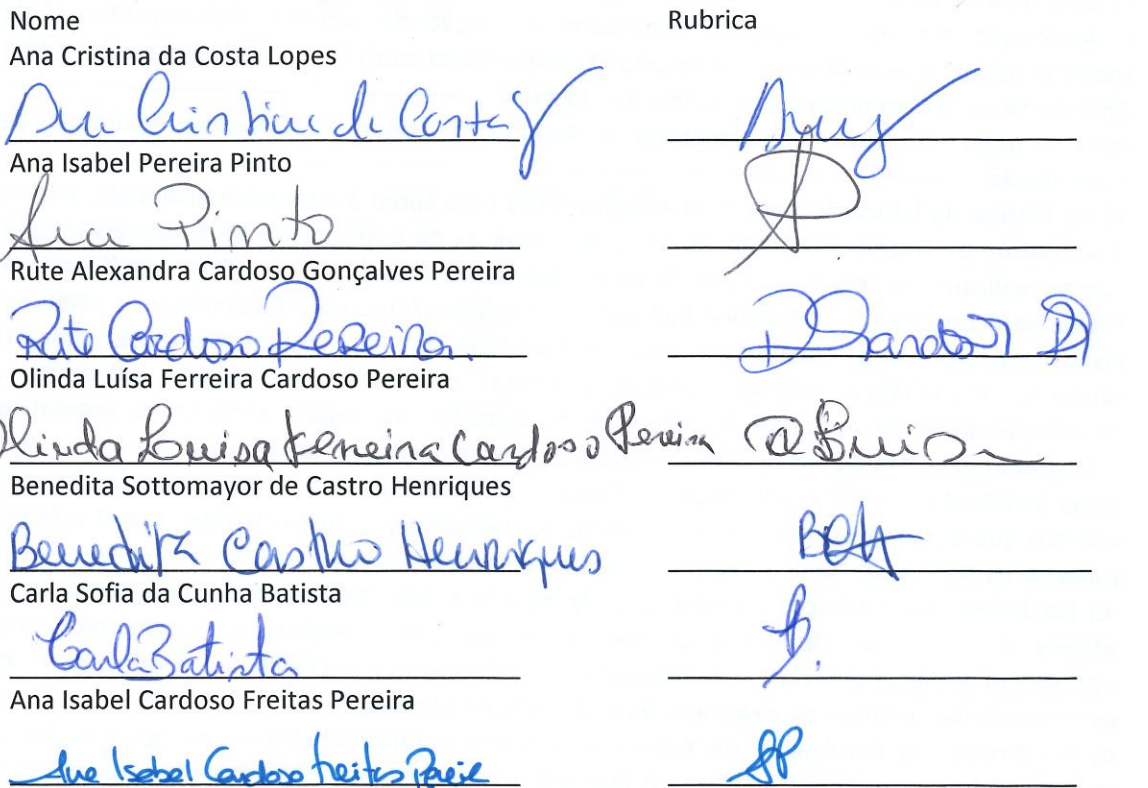 Nome Rubrica
Ana Cristina da Costa Lopes
Ana Cristina da Costa
Ana Isabel Pereira Pinto
Ana Pinto
Rute Alexandra Cardoso Gonçalves Pereira
Rute Cardoso Pereira.
Olinda Luísa Ferreira Cardoso Pereira
Olinda Louisa Ferreira Cardoso Pereira
Benedita Sottomayor de Castro Henriques
Benedita Castro Henriques BCH
Carla Sofia da Cunha Batista
Carla Batista
Ana Isabel Cardoso Freitas Pereira
Ana Isabel Cardoso Freitas Pereira AP